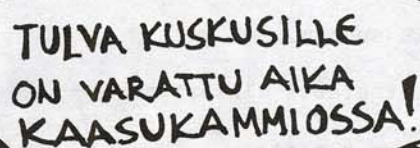 TULVA KUSKUSILLE
ON VARATTU AIKA
KAASUKAMMIOSSA!